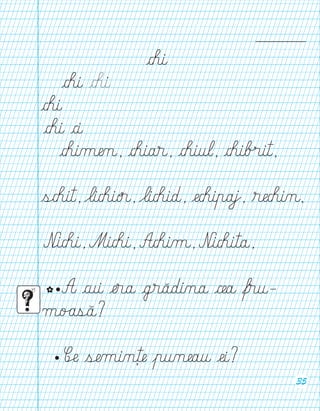 chi
chi chi
chi
chi ci
chimen, chiar, chiul, chibrit,
schit, lichior, lichid, echipaj, rechim,
Nichi, Michi, Achim, Nichita,
A cui era grădina cea fru-
moasă?
Ce semințe puneau ei?
35